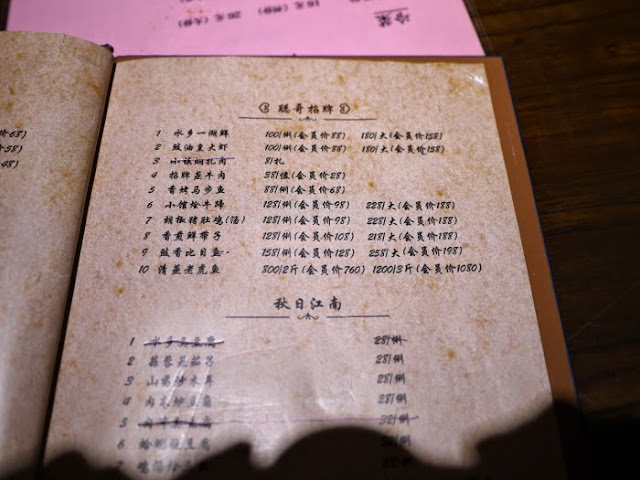 冷菜
18元(例份) 26元(大份)
聪哥招牌
1 水乡一湖鲜 100/例(会员价88) 180/大(会员价158)
2 豉油皇大虾 100/例(会员价88) 180/大(会员价158)
3 小镇焖扎肉 8/扎
4 招牌盖牛肉 38/位(会员价28)
5 香烤马步鱼 88/例(会员价68)
6 小馆烩牛蹄 128/例(会员价98) 228/大(会员价188)
7 胡椒猪肚鸡(汤) 128/例(会员价98) 228/大(会员价188)
8 香煎鲜带子 128/例(会员价108) 218/大(会员价188)
9 豉香比目鱼 158/例(会员价128) 258/大(会员价198)
10 清蒸老虎鱼 800/2斤(会员价760) 1200/3斤(会员价1080)
秋日江南
1 28/例
2 蒜蓉茄子 28/例
3 山药炒木耳 28/例
4 肉丸炒豆腐 28/例
5 32/例
6 豆腐
7
价68)
价58)
价48)